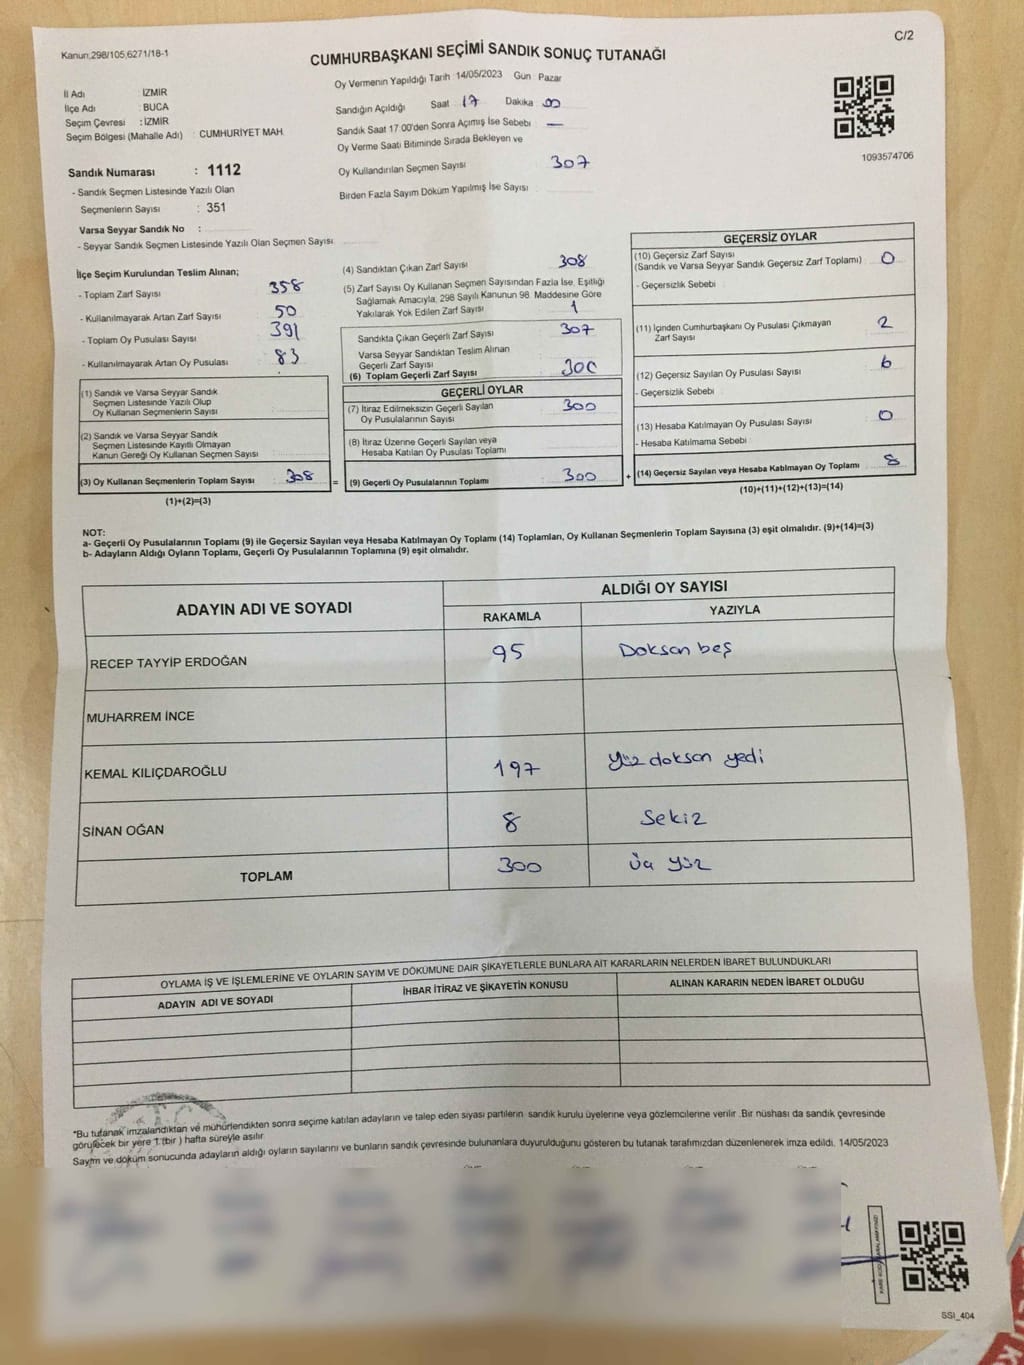 Kanun,298/105,6271/18-1
C/2
CUMHURBAŞKANI SEÇİMİ SANDIK SONUÇ TUTANAĞI
Oy Vermenin Yapıldığı Tarih 14/05/2023 Gün : Pazar
İl Adı : İZMİR
İlçe Adı : BUCA
Seçim Çevresi : İZMİR
Seçim Bölgesi (Mahalle Adı) : CUMHURİYET MAH.
Sandığın Açıldığı Saat 17 Dakika 00
Sandık Saat 17.00'den Sonra Açmış İse Sebebi : —
Oy Verme Saati Bitiminde Sırada Bekleyen ve
Oy Kullandırılan Seçmen Sayısı 307
Birden Fazla Sayım Döküm Yapılmış İse Sayısı
1093574706
Sandık Numarası : 1112
- Sandık Seçmen Listesinde Yazılı Olan
Seçmenlerin Sayısı : 351
Varsa Seyyar Sandık No :
- Seyyar Sandık Seçmen Listesinde Yazılı Olan Seçmen Sayısı
İlçe Seçim Kurulundan Teslim Alınan;
- Toplam Zarf Sayısı : 358
- Kullanılmayarak Artan Zarf Sayısı : 50
- Toplam Oy Pusulası Sayısı : 391
- Kullanılmayarak Artan Oy Pusulası : 83
(1) Sandık ve Varsa Seyyar Sandık
Seçmen Listesinde Yazılı Olup
Oy Kullanan Seçmenlerin Sayısı :
(2) Sandık ve Varsa Seyyar Sandık
Seçmen Listesinde Kayıtlı Olmayan
Kanun Gereği Oy Kullanan Seçmen Sayısı :
(3) Oy Kullanan Seçmenlerin Toplam Sayısı : 308
(1)+(2)=(3)
(4) Sandıktan Çıkan Zarf Sayısı : 308
(5) Zarf Sayısı Oy Kullanan Seçmen Sayısından Fazla İse, Eşitliği
Sağlamak Amacıyla, 298 Sayılı Kanunun 98. Maddesine Göre
Yakılarak Yok Edilen Zarf Sayısı : 1
Sandıkta Çıkan Geçerli Zarf Sayısı : 307
Varsa Seyyar Sandıktan Teslim Alınan
Geçerli Zarf Sayısı :
(6) Toplam Geçerli Zarf Sayısı : 300
GEÇERLİ OYLAR
(7) İtiraz Edilmeksizin Geçerli Sayılan
Oy Pusulalarının Sayısı : 300
(8) İtiraz Üzerine Geçerli Sayılan veya
Hesaba Katılan Oy Pusulası Toplamı :
= (9) Geçerli Oy Pusulalarının Toplamı : 300
GEÇERSİZ OYLAR
(10) Geçersiz Zarf Sayısı
(Sandık ve Varsa Seyyar Sandık Geçersiz Zarf Toplamı) : 0
- Geçersizlik Sebebi :
(11) İçinden Cumhurbaşkanı Oy Pusulası Çıkmayan
Zarf Sayısı : 2
(12) Geçersiz Sayılan Oy Pusulası Sayısı : 6
- Geçersizlik Sebebi :
(13) Hesaba Katılmayan Oy Pusulası Sayısı : 0
- Hesaba Katılmama Sebebi :
+ (14) Geçersiz Sayılan veya Hesaba Katılmayan Oy Toplamı : 8
(10)+(11)+(12)+(13)=(14)
NOT:
a- Geçerli Oy Pusulalarının Toplamı (9) ile Geçersiz Sayılan veya Hesaba Katılmayan Oy Toplamı (14) Toplamları, Oy Kullanan Seçmenlerin Toplam Sayısına (3) eşit olmalıdır. (9)+(14)=(3)
b- Adayların Aldığı Oyların Toplamı, Geçerli Oy Pusulalarının Toplamına (9) eşit olmalıdır.
ADAYIN ADI VE SOYADI
ALDIĞI OY SAYISI
RAKAMLA YAZIYLA
RECEP TAYYİP ERDOĞAN 95 Doksan beş
MUHARREM İNCE
KEMAL KILIÇDAROĞLU 197 Yüz doksan yedi
SİNAN OĞAN 8 Sekiz
TOPLAM 300 Üç yüz
OYLAMA İŞ VE İŞLEMLERİNE VE OYLARIN SAYIM VE DÖKÜMÜNE DAİR ŞİKAYETLERLE BUNLARA AİT KARARLARIN NELERDEN İBARET BULUNDUKLARI
ADAYIN ADI VE SOYADI İHBAR İTİRAZ VE ŞİKAYETİN KONUSU ALINAN KARARIN NEDEN İBARET OLDUĞU
*Bu tutanak imzalandıktan ve mühürlendikten sonra seçime katılan adayların ve talep eden siyasi partilerin sandık kurulu üyelerine veya gözlemcilerine verilir .Bir nüshası da sandık çevresinde
görülecek bir yere 1 (bir ) hafta süreyle asılır.
Sayım ve döküm sonucunda adayların aldığı oyların sayılarını ve bunların sandık çevresinde bulunanlara duyurulduğunu gösteren bu tutanak tarafımızdan düzenlenerek imza edildi. 14/05/2023
SSİ_404